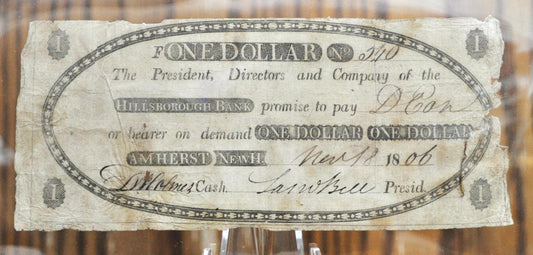 1 1
F ONE DOLLAR No. 340
The President, Directors and Company of the
HILLSBOROUGH BANK promise to pay D
or bearer on demand ONE DOLLAR ONE DOLLAR
AMHERST NEW H. Nov 18 1806
Cash. Saml Bell Presid.
1 1